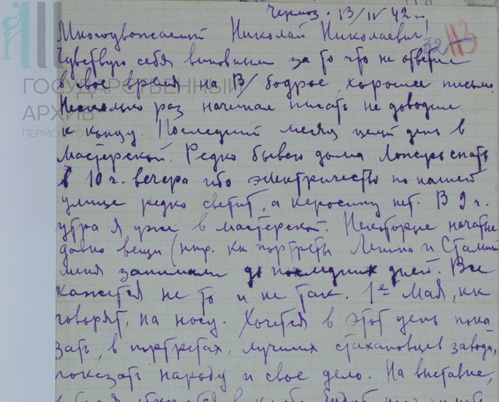 Чермоз. 13/IV 42 г.
113
Многоуважаемый Николай Николаевич,
Чувствую себя виновным за то что не ответил
в свое время на В/ бодрое, хорошее письмо.
Несколько раз начинал писать не доводил
к концу. Последний месяц целый день в
мастерской. Редко бываю дома. Ложусь спать
в 10 ч. вечера ибо электричество по нашей
улице редко светит, а керосину нет. В 9 ч.
утра я уже в мастерской. Некоторые начатые
давно вещи (напр. как портреты Ленина и Сталина
меня занимали до последних дней. Все
кажется не то и не так. 1е Мая, как
говорят, на носу. Хочется в этот день пока
зать, в портретах, лучших стахановцев завода,
показать народу и свое дело. На выставке,
ГОСУДАРСТВЕННЫЙ
АРХИВ
ПЕРМСКОГО